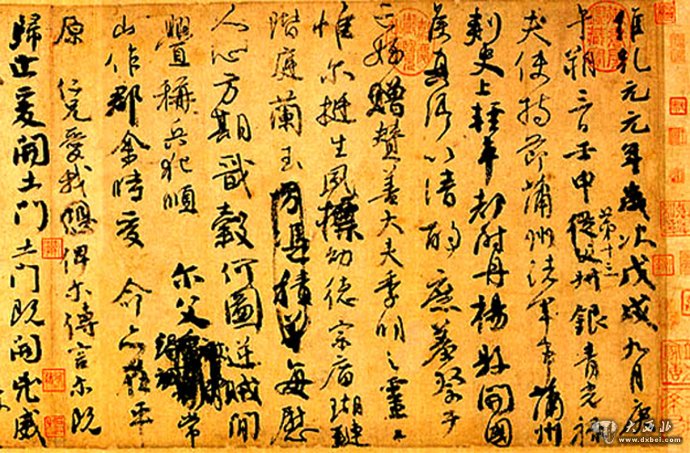 維乾元元年歲次戊戌九月庚
午朔三日壬申第十三從父叔銀青光祿
夫使持節蒲州諸軍事蒲州
刺史上輕車都尉丹楊縣開國
侯真卿以清酌庶羞祭于
亡姪贈贊善大夫季明之靈曰
惟爾挺生夙標幼德宗廟瑚璉
階庭蘭玉方憑積善每慰
人心方期戩穀何圖逆賊閒
釁稱兵犯順爾父常
山作郡余時受命亦在平
原仁兄愛我俾爾傳言爾既
歸止爰開土門土門既開凶威
www.dxbei.com